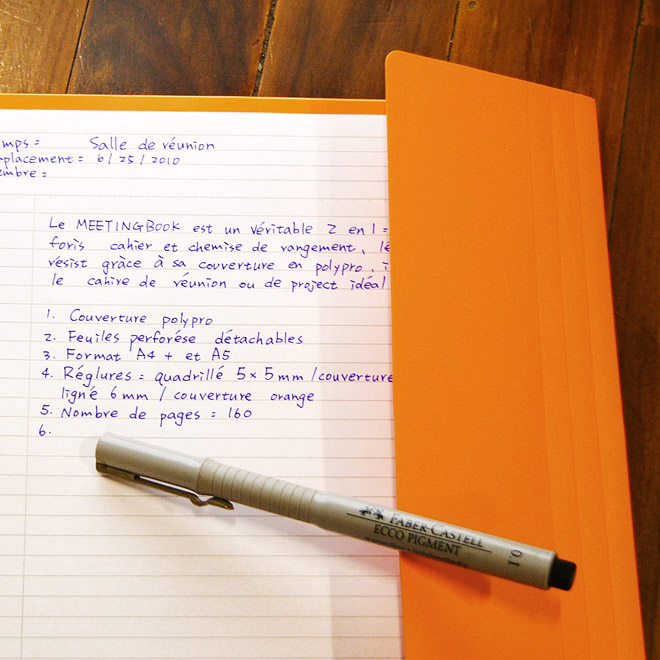 mps = Salle de réunion
placement = 6/25/2010
embre =
Le MEETINGBOOK est un véritable 2 en 1 =
foris cahier et chemise de rangement, lé
vésist grâce à sa couverture en polypro, i
le cahire de réunion ou de project idéal
1. Couverture polypro
2. Feuiles perforése détachables
3. Format A4 + et A5
4. Réglures = quadrillé 5×5 mm /couverture
ligné 6 mm / couverture orange
5. Nombre de pages : 160
6.
FABER-CASTELL
ECCO PIGMENT
0.1